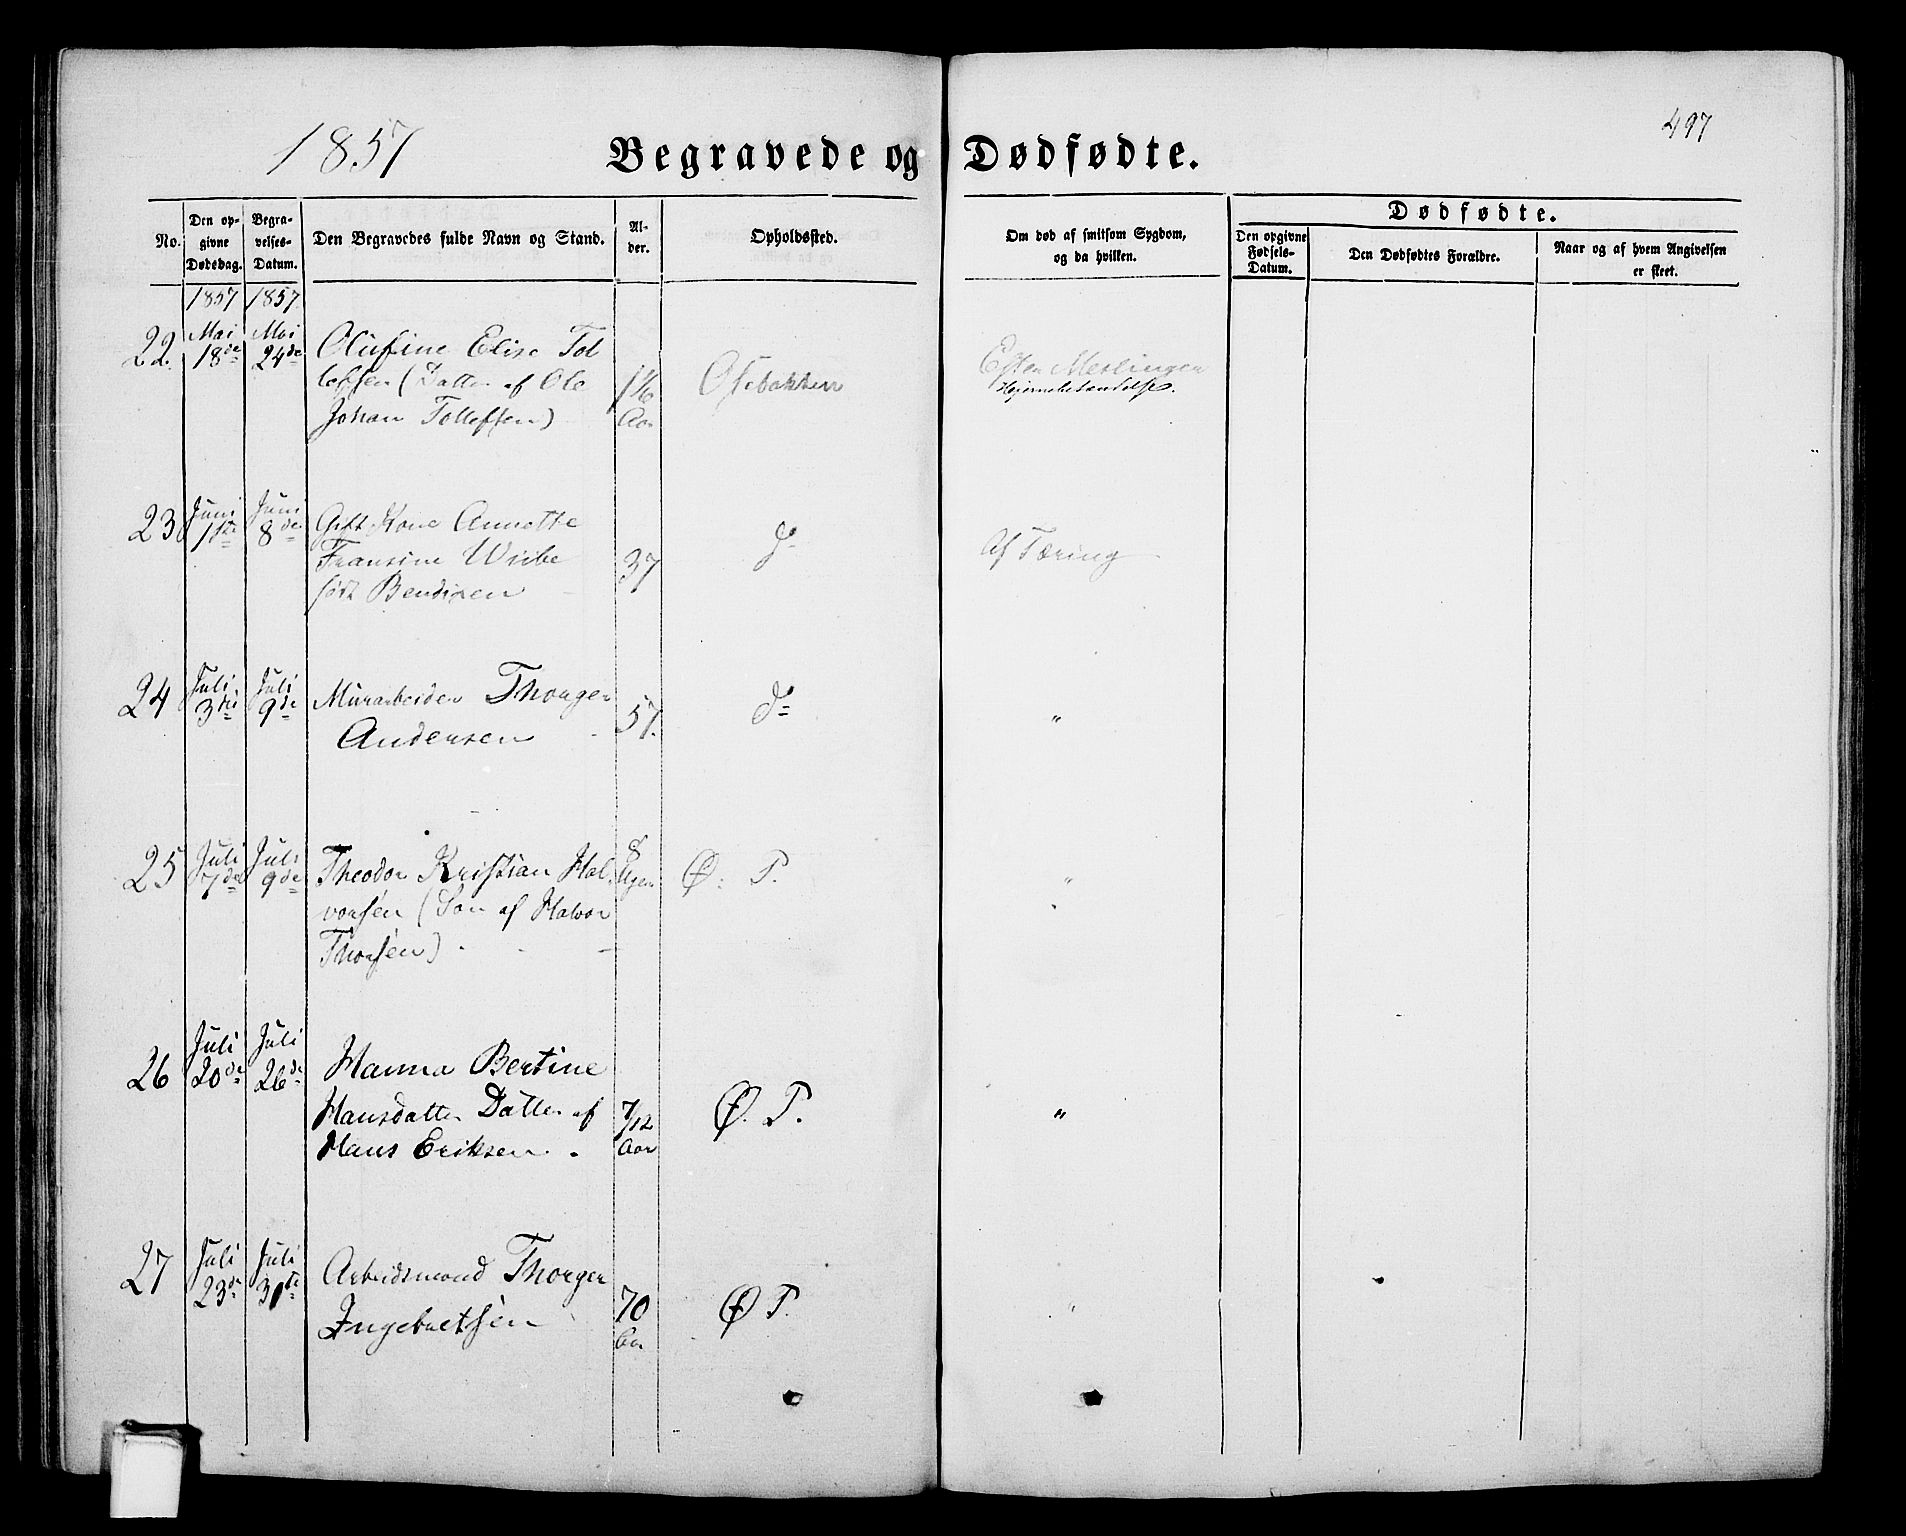 1857
Begravede og Dødfødte.
497
No.
Den opgivne Dødsdag.
Begravelses-Datum.
Den Begravedes fulde Navn og Stand.
Alder.
Opholdssted.
Om død af smitsom Sygdom, og da hvilken.
Dødfødte.
Den opgivne Fødsels-Datum.
Den Dødfødtes Forældre.
Naar og af hvem Angivelsen er skeet.
1857 1857
22. Mai 18de Mai 24de
Olufine Elise Tol
lefsen (Datter af Ole
Johan Tollefsen)
1 1/6 Aar
Osebakken
Efter Meslinger
Hjernebetændelse.
23 Juni 1ste Juni 8de
Gift Kone Annette
Fransine Wiibe
født Bendixen
37
do
Af Tæring
24 Juli 3die Juli 9de
Murarbeider Thorger
Andersen
57.
do
"
25 Juli 7de Juli 9de
Theodor Kristian Hal
vorsen (Søn af Halvor
Thorsen)
8 Uger
Ø. P.
"
26 Juli 20de Juli 26de
Hanna Bertine
Hansdatter Datter af
Hans Eriksen.
7/12 Aar
Ø. P.
"
27 Juli 23de Juli 30te
Arbeidsmand Thorger
Ingebretsen
70 Aar
Ø P.
"